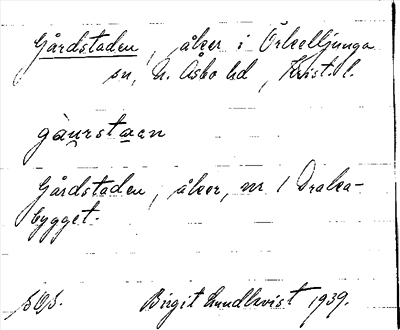 Gårdstaden, åker i Örkelljunga
sn, N. Åsbo hd, Krist. l.
gàu̯rstaen
Gårdstaden, åker, nr 1 Draka-
bygget.
Birgit Lundkvist 1939.